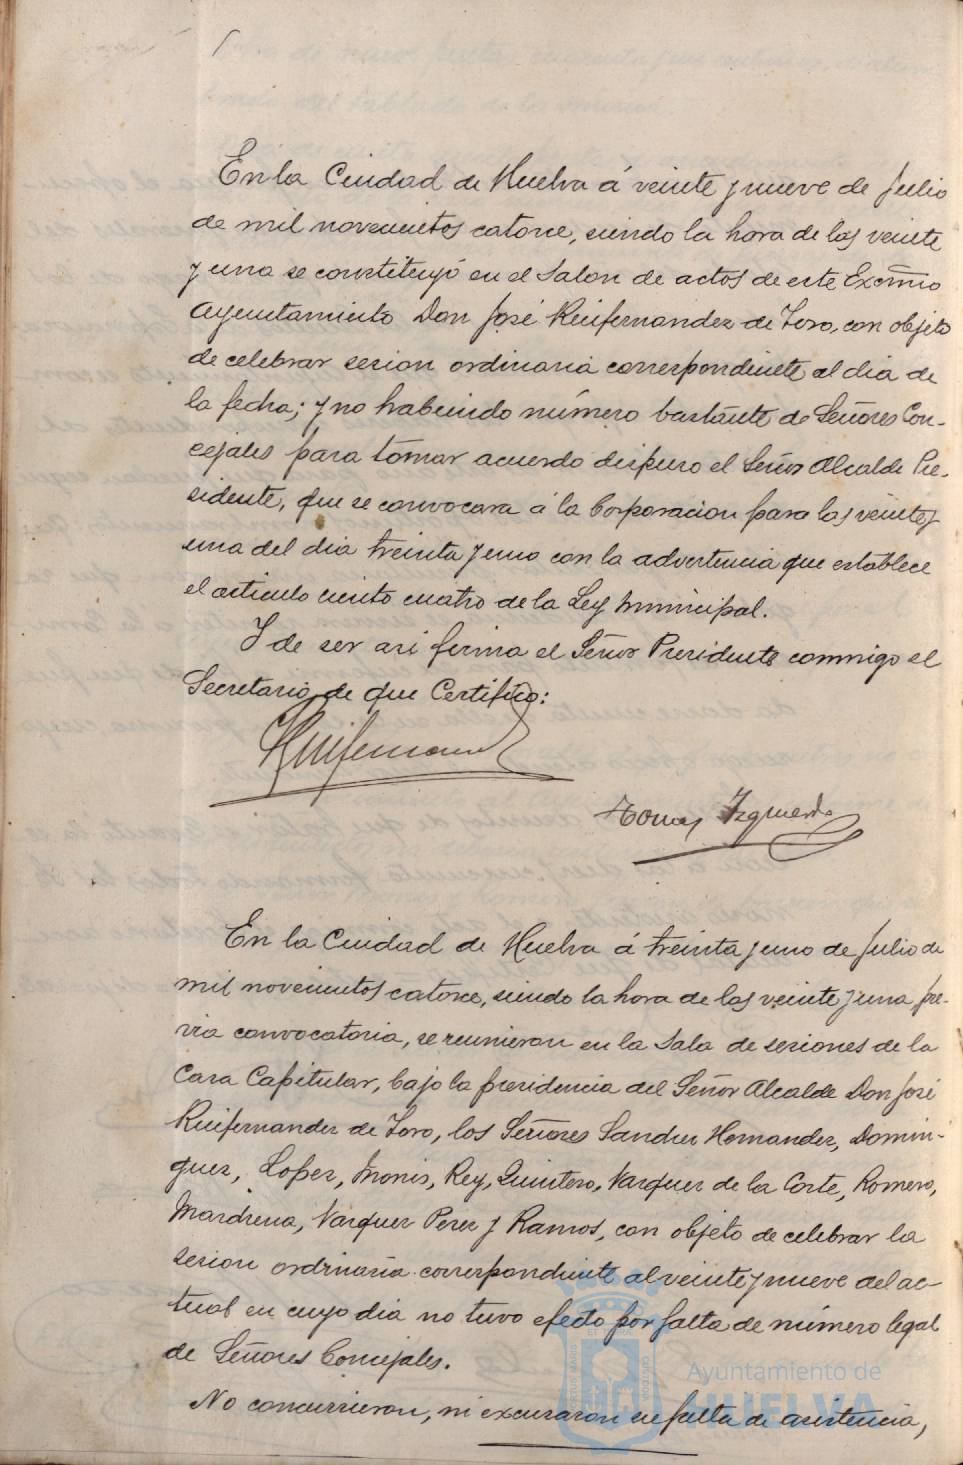 En la Ciudad de Huelva á veinte y nueve de Julio
de mil novecientos catorce, siendo la hora de las veinte
y una se constituyó en el Salon de actos de este Excmo
Ayuntamiento Don José Ruifernandez de Toro, con objeto
de celebrar sesion ordinaria correspondiente al dia de
la fecha; y no habiendo número bastante de Señores Con-
cejales para tomar acuerdo dispuso el Señor Alcalde Pre-
sidente, que se convocara á la Corporacion para las veinte y
una del dia treinta y uno con la advertencia que establece
el articulo ciento cuatro de la Ley Municipal.
Y de ser asi firma el Señor Presidente conmigo el
Secretario de que Certifico:
Ruifernandez
Tomas Izquierdo
En la Ciudad de Huelva á treinta y uno de Julio de
mil novecientos catorce, siendo la hora de las veinte y una, pre-
via convocatoria, se reunieron en la Sala de sesiones de la
Casa Capitular, bajo la presidencia del Señor Alcalde Don José
Ruifernandez de Toro, los Señores Sanchez Hernandez, Domin-
guez, Lopez, Monis, Rey, Quintero, Vazquez de la Corte, Romero,
Vazquez Perez y Ramos, con objeto de celebrar la
sesion ordinaria correspondiente al veinte y nueve del ac-
tual en cuyo dia no tuvo efecto por falta de número legal
de Señores Concejales.
No concurrieron, ni excusaron su falta de asistencia,
Ayuntamiento de
HUELVA